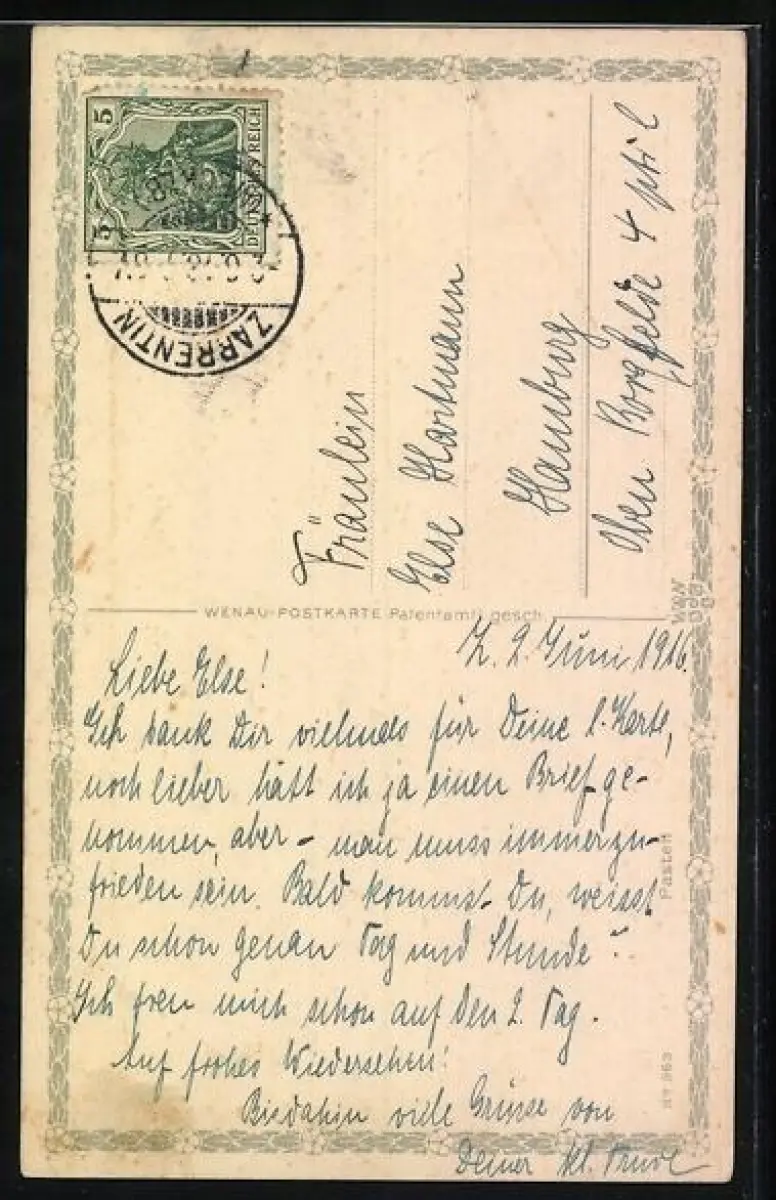 5 5
DEUTSCHES REICH
ZARRENTIN
Fräulein
Else Hartmann
Hamburg
Oben Borgfelde 4 ptr
WENAU-POSTKARTE Patentamtl. gesch.
Z. 2. Juni 1916.
Liebe Else!
Ich dank Dir vielmals für Deine l. Karte,
noch lieber hätt ich ja einen Brief ge-
nommen, aber – man muss immer zu-
frieden sein. Bald kommst Du, weisst
Du schon genau Tag und Stunde?
Ich freu mich schon auf den 2. Tag.
Auf frohes Wiedersehen!
Bisdahin viele Grüsse von
Deiner kl. Trude
Pastell